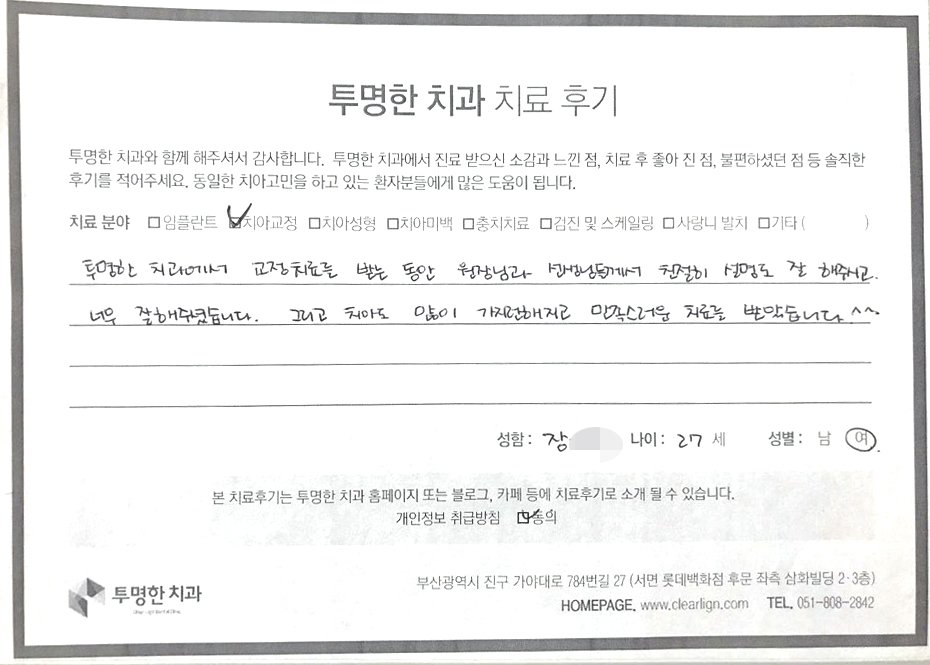 투명한 치과 치료 후기
투명한 치과와 함께 해주셔서 감사합니다. 투명한 치과에서 진료 받으신 소감과 느낀 점, 치료 후 좋아 진 점, 불편하셨던 점 등 솔직한
후기를 적어주세요. 동일한 치아고민을 하고 있는 환자분들에게 많은 도움이 됩니다.
치료 분야 □임플란트 ☑치아교정 □치아성형 □치아미백 □충치치료 □검진 및 스케일링 □사랑니 발치 □기타 ( )
투명한 치과에서 교정치료를 받는 동안 원장님과 선생님들께서 친절히 설명도 잘 해주시고.
너무 잘해주셨습니다. 그리고 치아도 많이 가지런해지고 만족스러운 치료를 받았습니다 ^^
성함 : 장 나이 : 27 세 성별 : 남 여
본 치료후기는 투명한 치과 홈페이지 또는 블로그, 카페 등에 치료후기로 소개 될 수 있습니다.
개인정보 취급방침 ☑동의
투명한 치과
부산광역시 진구 가야대로 784번길 27 (서면 롯데백화점 후문 좌측 삼화빌딩 2·3층)
HOMEPAGE. www.clearlign.com TEL. 051-808-2842